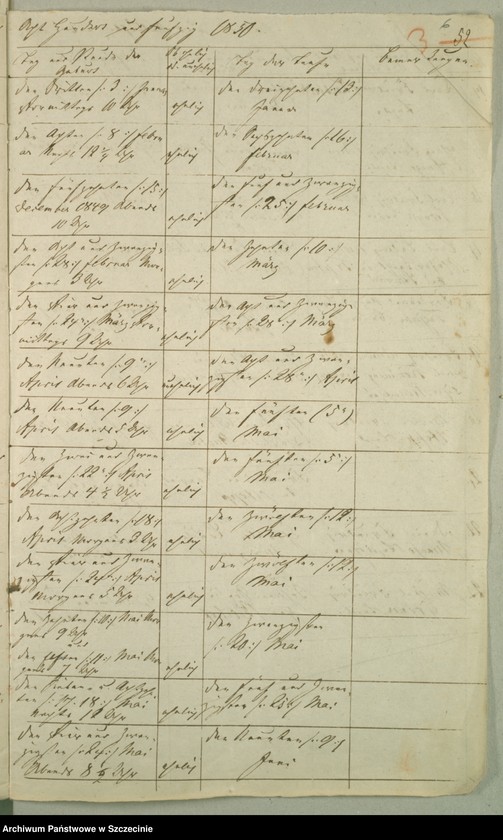 Acht Hundert und fünfzig 1850.
6
3 52
Tag und Stunde der Geburt
Ob ehelich od. unehelich
Tag der Taufe
Bemerkungen.
den Dritten (: 3 :) Januar
Vormittags 10 Uhr
ehelich
den Dreizehnten (: 13 :)
Januar
den Achten (: 8 :) Febru
ar Nachts 12 ½ Uhr
ehelich
den Sechszehnten (: 16 :)
Februar
den fünfzehnten (: 15 :)
December 1849 Abends
10 Uhr
ehelich
den fünf und zwanzig
sten (: 25 :) Februar
den Acht und zwanzig
sten (: 28 :) Februar Mor
gens 3 Uhr
ehelich
den Zehnten (: 10 :)
März
den Vier und zwanzig
sten (: 24 :) März Vor
mittags 9 Uhr
ehelich
den Acht und zwanzig
sten (: 28 :) März
den Neunten (: 9 :)
April Abends 6 Uhr
unehelich
den Acht und zwan
zigsten (: 28 :) April
den Neunten (: 9 :)
April Abends 5 Uhr
ehelich
den fünften (5)
Mai
den Zwei und zwan
zigsten (: 22 :) April
Abends 4 ½ Uhr
ehelich
den fünften (: 5 :)
Mai
den Achtzehnten (: 18 :)
April Morgens 2 Uhr
ehelich
den Zwölften (: 12 :)
Mai
den Vier und zwan
zigsten (: 24 :) April
Morgens 5 Uhr
ehelich
den Zwölften (: 12 :)
Mai
den Zehnten (: 10 :) Mai Mor
gens 9 Uhr
den Elften (: 11 :) Mai Mor
gens 7 Uhr
ehelich
den Zwanzigsten
(: 20 :) Mai
(: 17. 18 :) Mai
Nachts 12 Uhr
ehelich
den fünf und zwan
zigsten (: 25 :) Mai
den Vier und zwan
zigsten (: 24 :) Mai
Abends 8 ½ Uhr
ehelich
den Neunten (: 9 :)
Juni
Archiwum Państwowe w Szczecinie